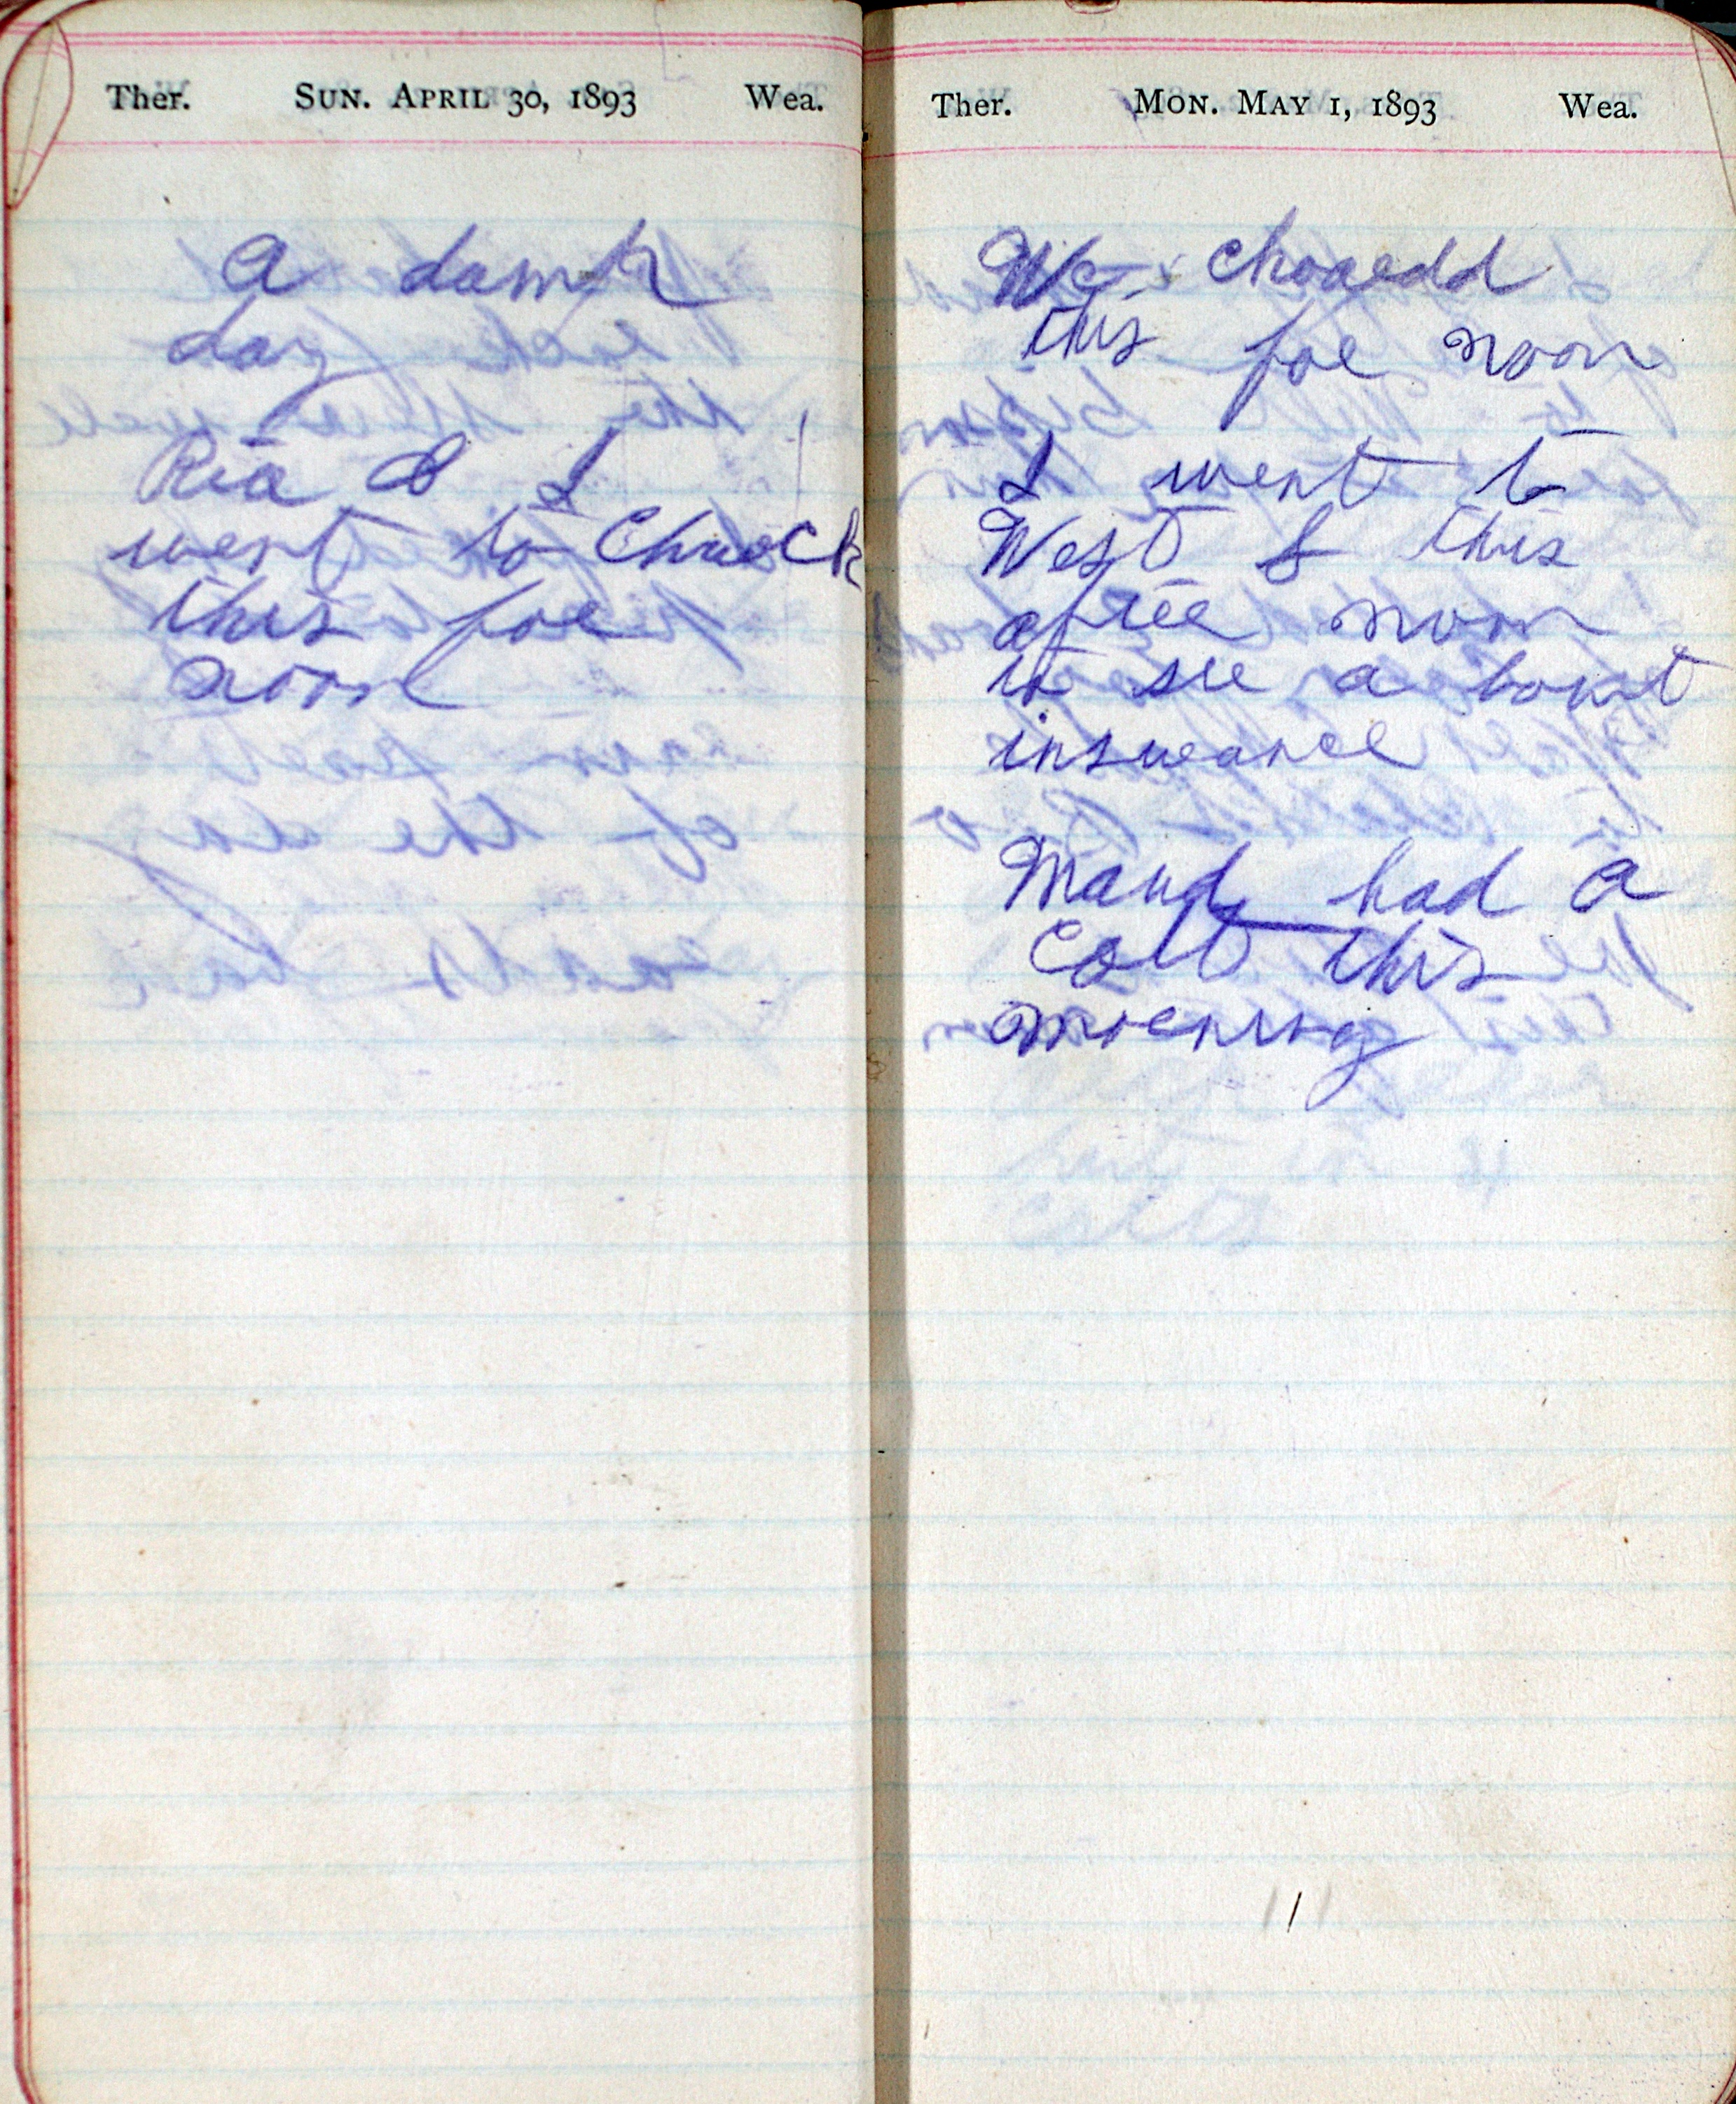 Ther. SUN. APRIL 30, 1893 Wea.
A damp
day
Ria & I
went to Chuock
this foe
noon
Ther. MON. MAY 1, 1893 Wea.
We choaedd
this foe noon
I went to
West & this
aftee noon
to see a bout
insueance
Maud had a
Colt this
moening